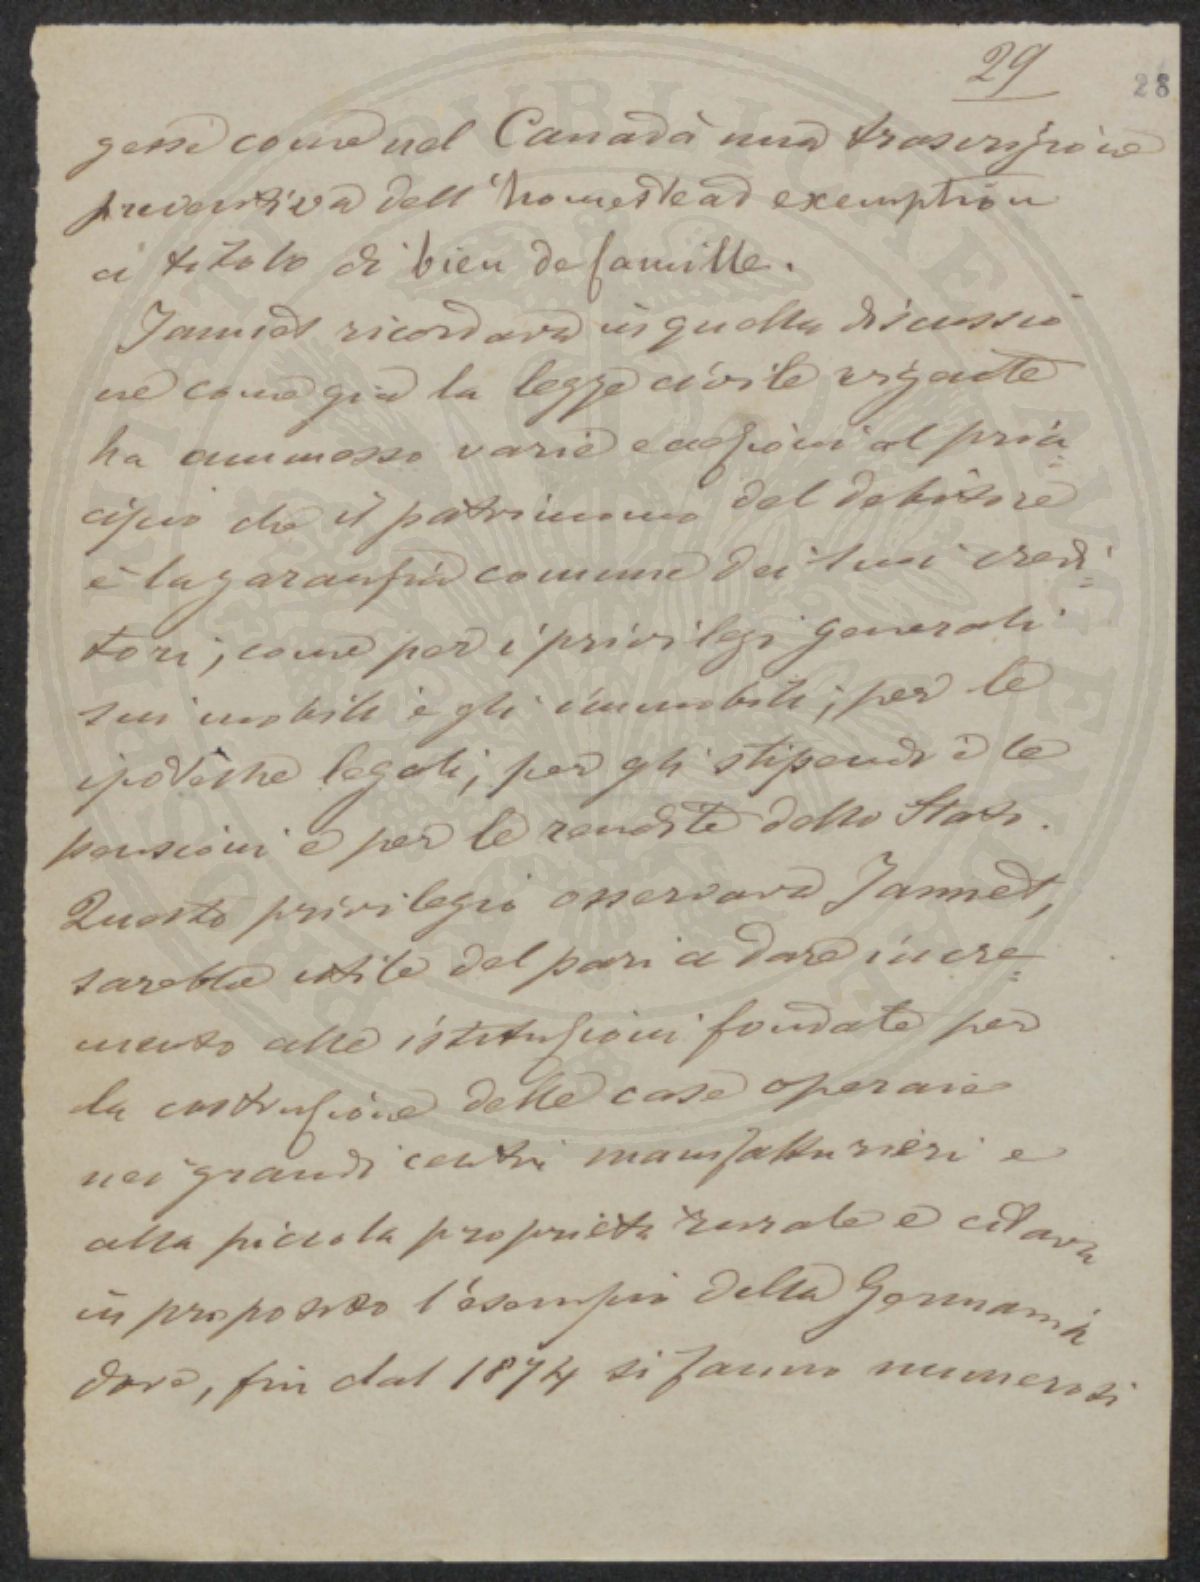 29
28
gesse come nel Canadà una trascrizione
preventiva dell'homestead exemption
a titolo di bien de famille.
Jannet ricordava in quella discussio
ne come già la legge civile vigente
ha ammesso varie eccezioni al prin=
cipio che il patrimonio del debitore
è la garanzia comune dei suoi credi=
tori; come per i privilegi generali
sui mobili e gli immobili; per le
ipoteche legali; per gli stipendi e le
pensioni e per le rendite dello Stato.
Questo privilegio osservava Jannet,
sarebbe utile del pari a dare incre=
mento alle istituzioni fondate per
la costruzione delle case operaie
nei grandi centri manifatturieri e
alla piccola proprietà rurale e citava
in proposito l'esempio della Germania
dove, fin dal 1874 si fanno numerosi